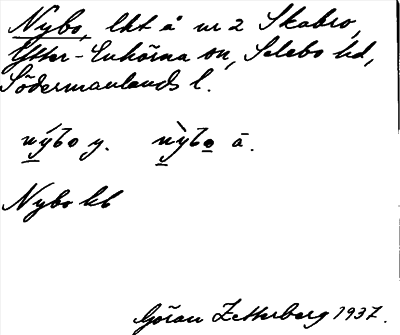 Nybo, lht å nr 2 Skabro,
Ytter-Enhörna sn, Selebo hd,
Södermanlands l.
nýbo y. nỳbo ä.
Nybo kb
Göran Zetterberg 1937.